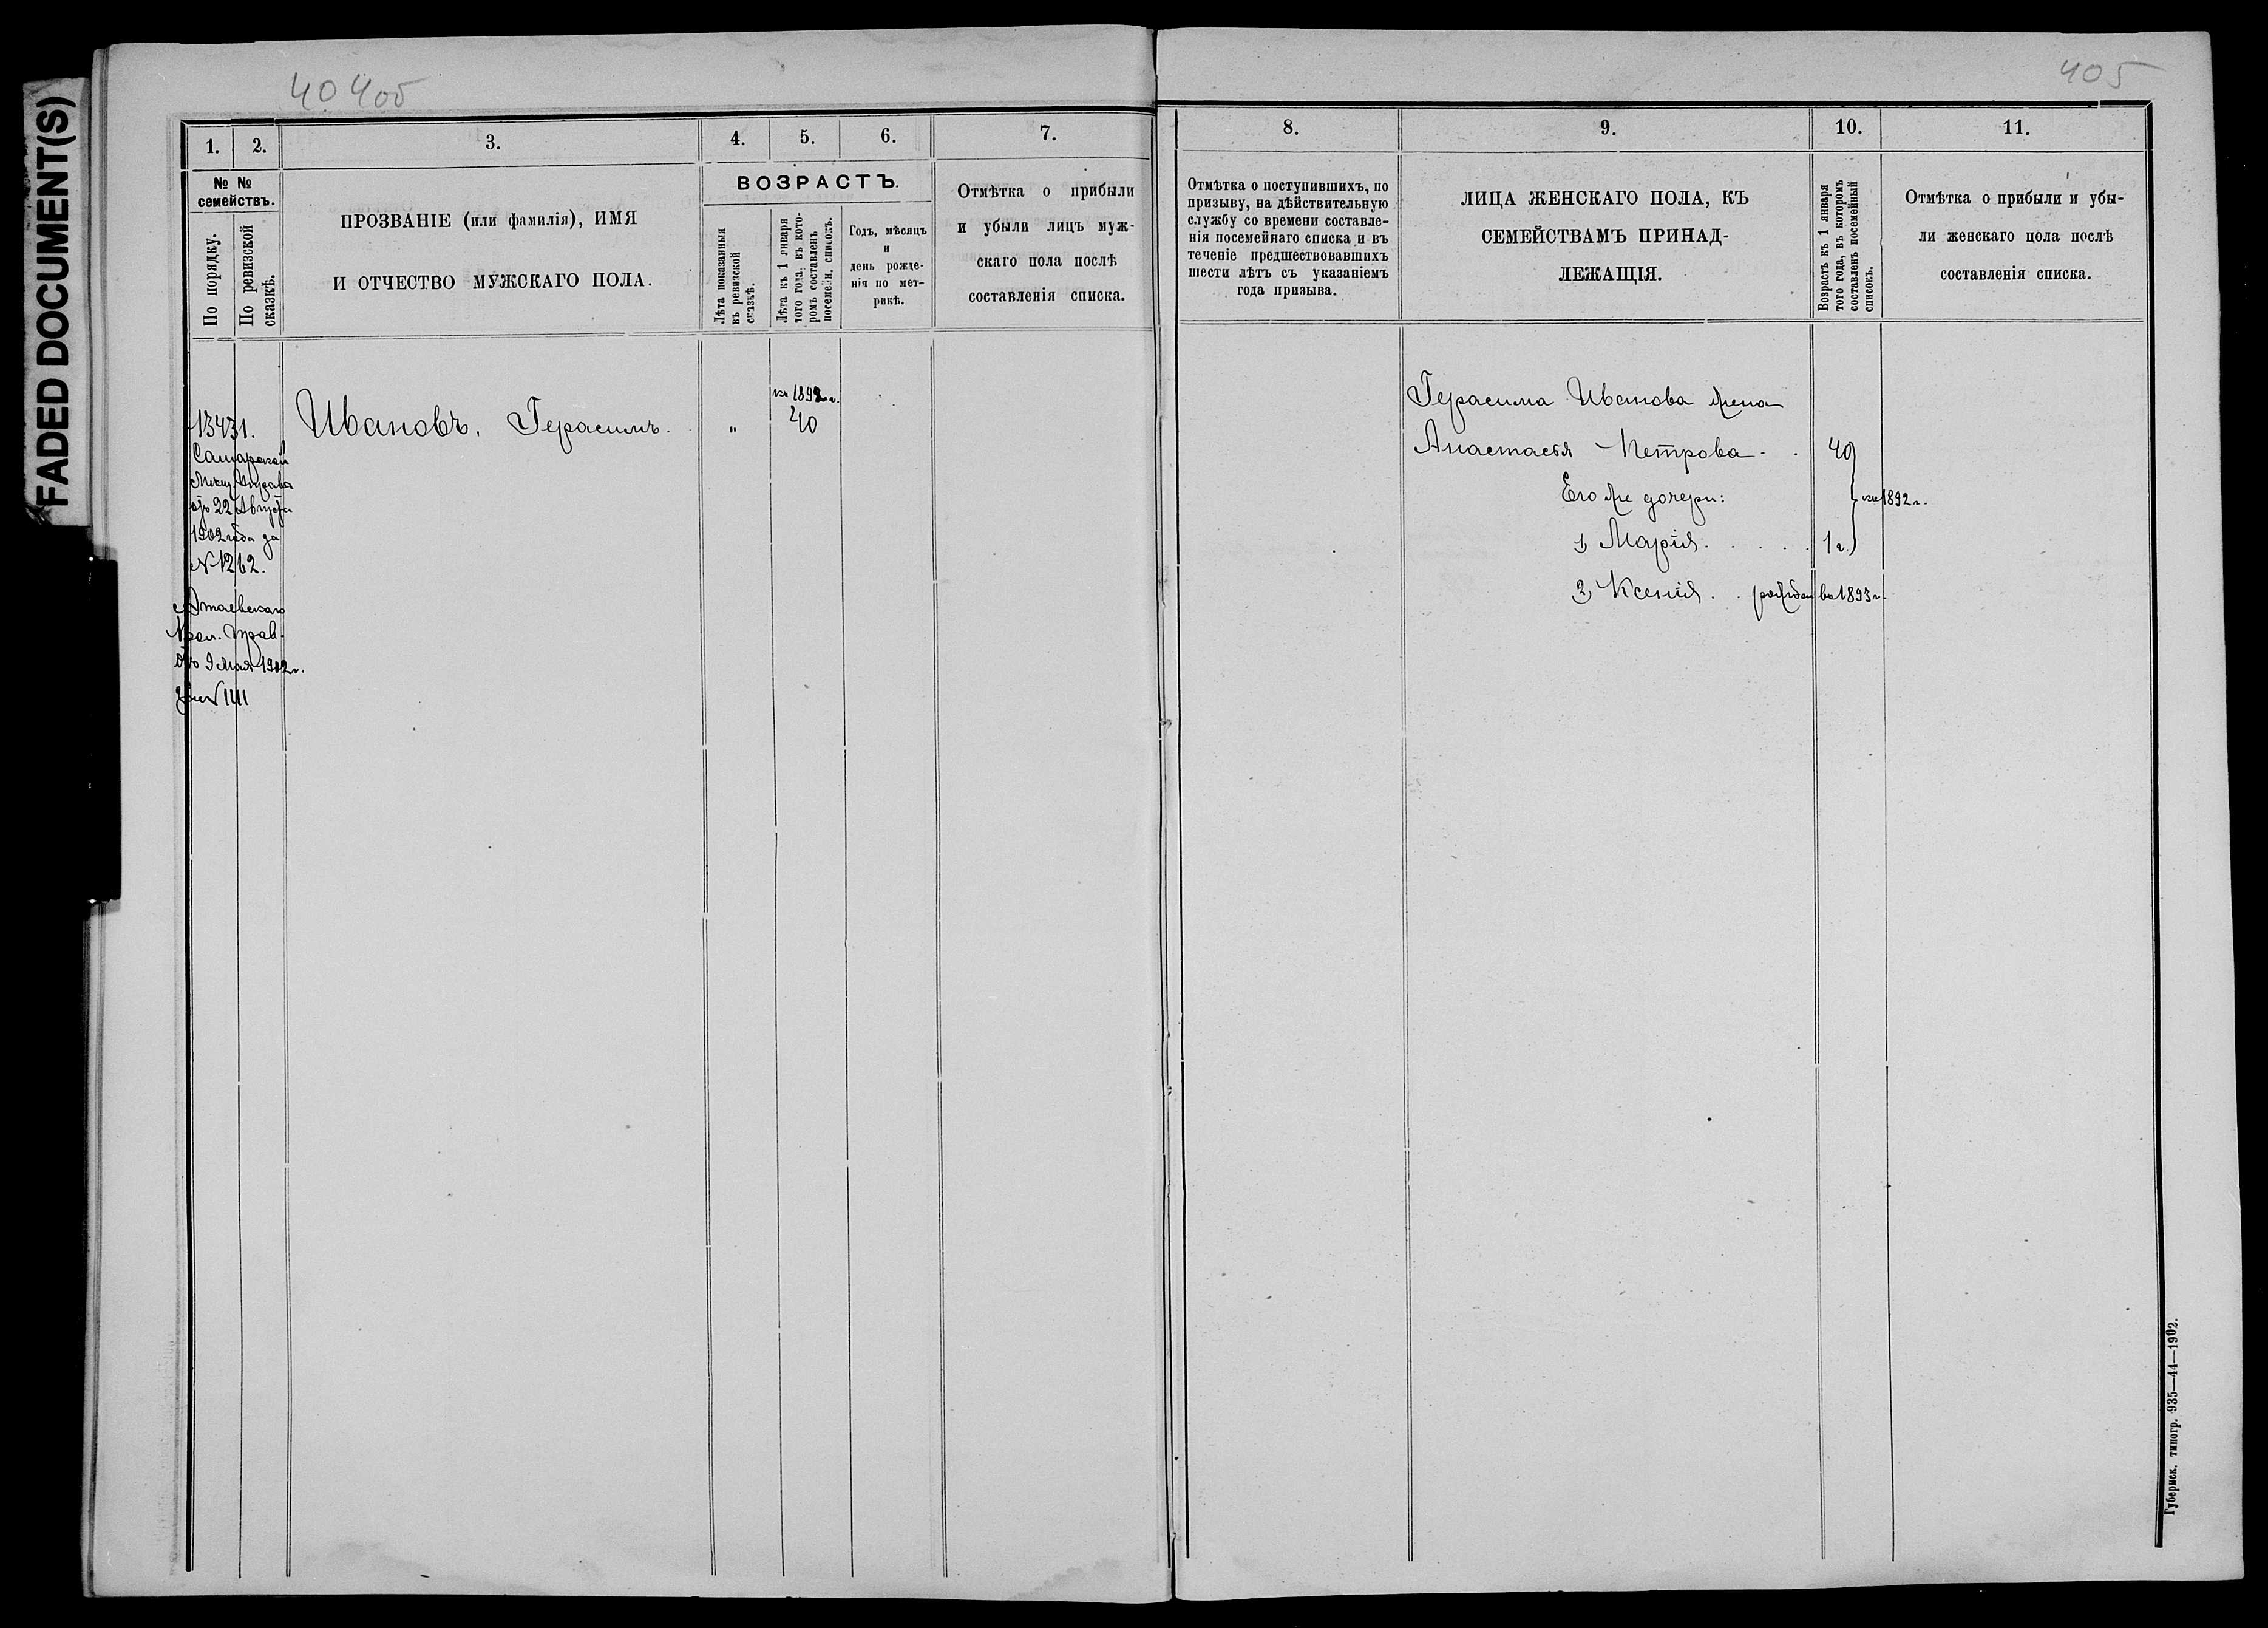 FADED DOCUMENT(S)
404об
405
1.
2.
3.
4.
5.
6.
7.
№ №
семействъ.
По порядку.
По ревизской
сказкѣ.
ПРОЗВАНІЕ (или фамилія), ИМЯ
И ОТЧЕСТВО МУЖСКАГО ПОЛА.
ВОЗРАСТЪ.
Лѣта показанныя
въ ревизской
сказкѣ.
Лѣта къ 1 января
того года, въ кото-
ромъ составленъ
посемейн. списокъ.
Годъ, мѣсяцъ
и
день рожде-
нія по мет-
рикѣ.
Отмѣтка о прибыли
и убыли лицъ муж-
скаго пола послѣ
составленія списка.
8.
9.
10.
11.
Отмѣтка о поступившихъ, по
призыву, на дѣйствительную
службу со времени составле-
нія посемейнаго списка и въ
теченіе предшествовавшихъ
шести лѣтъ съ указаніемъ
года призыва.
ЛИЦА ЖЕНСКАГО ПОЛА, КЪ
СЕМЕЙСТВАМЪ ПРИНАД-
ЛЕЖАЩІЯ.
Возрастъ къ 1 января
того года, въ которомъ
составленъ посемейный
списокъ.
Отмѣтка о прибыли и убы-
ли женскаго пола послѣ
составленія списка.
13431.
Самарской
Мѣщ. Управы
отъ 22 Августа
1902 года за
№ 1262.
Прав.
отъ 9 Мая 1902 г.
за № 1111
Ивановъ, Герасимъ.
"
на 1892 г.
40
Герасима Иванова жена
Анастасія Петрова 40
Его же дочери: на 1892 г.
1) Марія 1 г.
2) Ксенія рожден въ 1893 г.
Губернск. типогр. 935—44—1902.